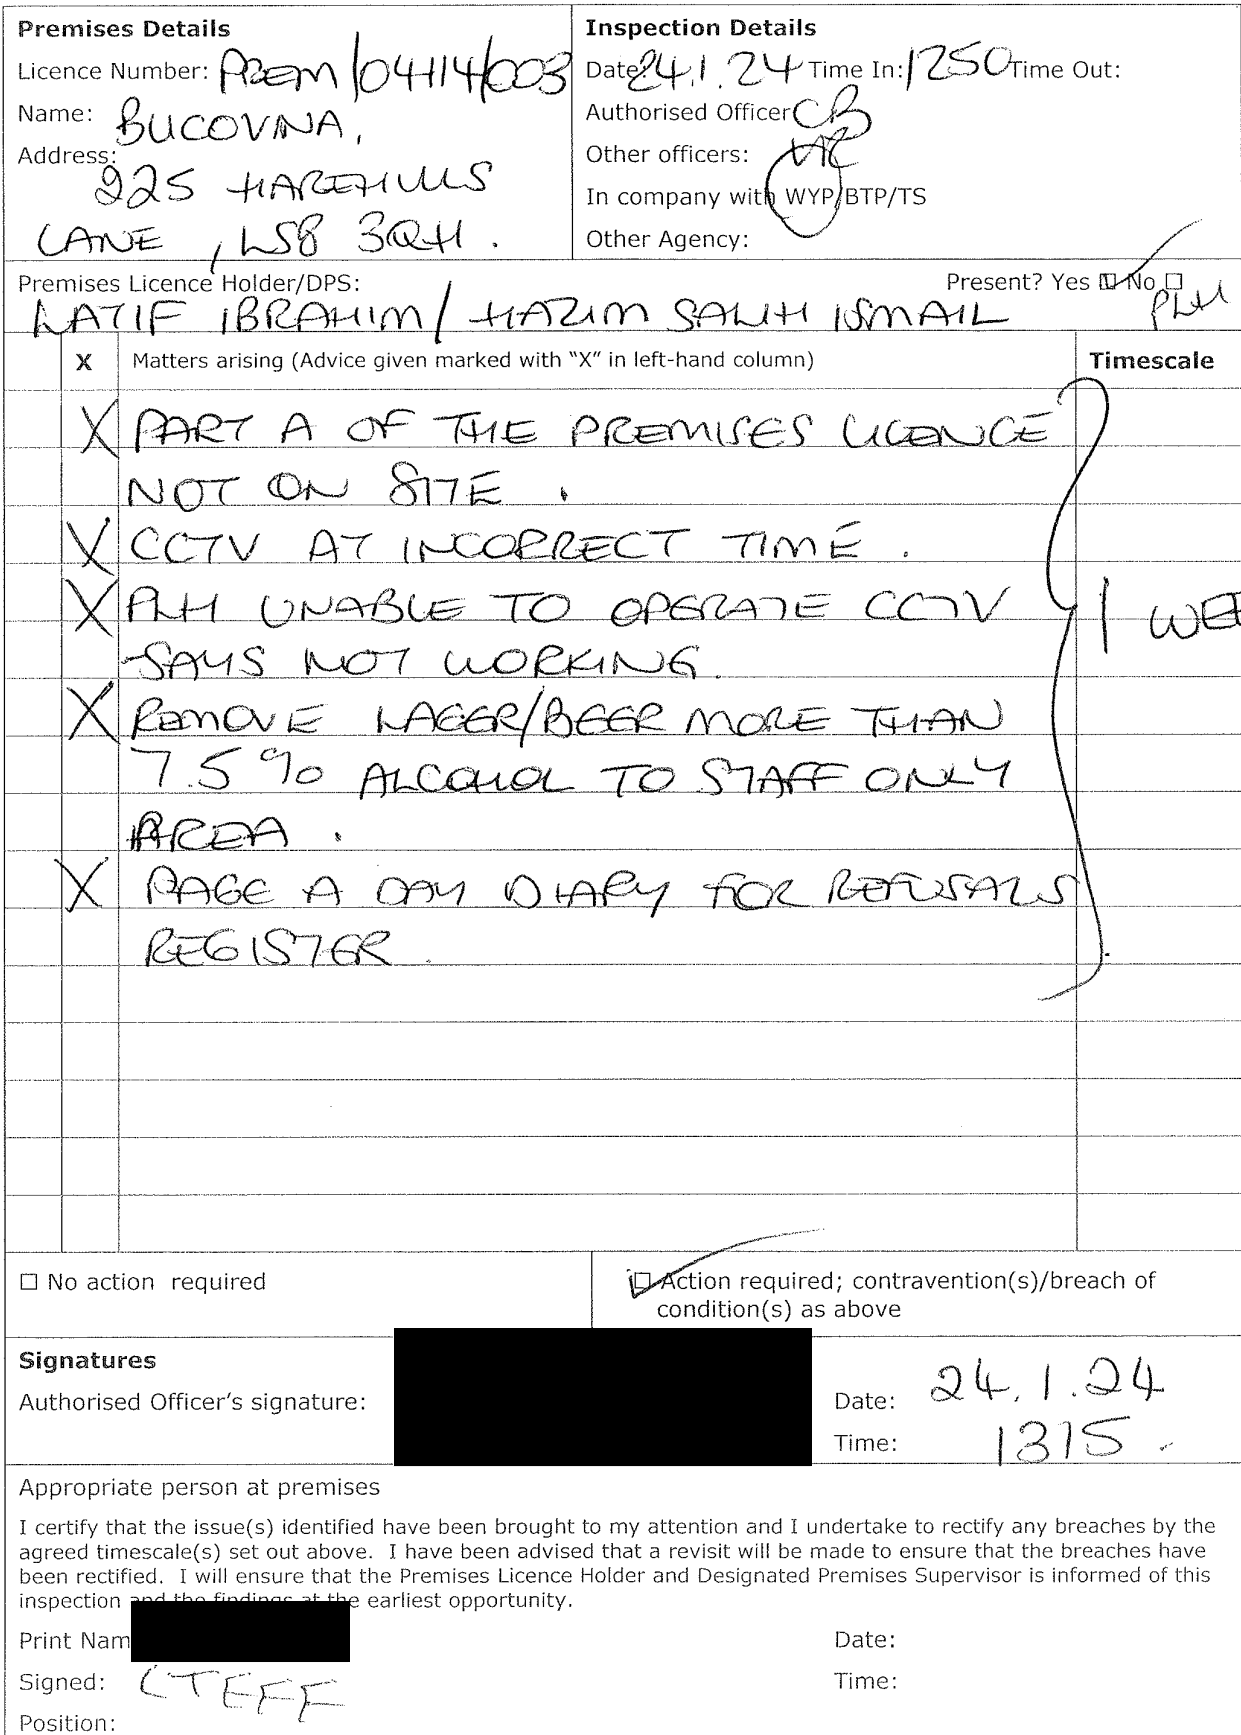 Premises Details
Licence Number: PREM/04414/003
Name: BUCOVINA,
Address: 225 HAREHILLS
LANE, LS8 3QH.
Inspection Details
Date: 24.1.24 Time In: 1250 Time Out:
Authorised Officer CB
Other officers:
In company with WYP/BTP/TS
Other Agency:
Premises Licence Holder/DPS: Present? Yes ☑ No ☐
LATIF IBRAHIM / HAZIM SALIH ISMAIL PLH
X Matters arising (Advice given marked with “X” in left-hand column) Timescale
X PART A OF THE PREMISES LICENCE
NOT ON SITE.
X CCTV AT INCORRECT TIME.
X PLH UNABLE TO OPERATE CCTV 1 WEE
SAYS NOT WORKING.
X REMOVE LAGER/BEER MORE THAN
7.5% ALCOHOL TO STAFF ONLY
AREA.
X PAGE A DAY DIARY FOR REFUSALS
REGISTER.
☐ No action required
☑ Action required; contravention(s)/breach of
condition(s) as above
Signatures
Authorised Officer's signature:
Date: 24.1.24
Time: 1315.
Appropriate person at premises
I certify that the issue(s) identified have been brought to my attention and I undertake to rectify any breaches by the
agreed timescale(s) set out above. I have been advised that a revisit will be made to ensure that the breaches have
been rectified. I will ensure that the Premises Licence Holder and Designated Premises Supervisor is informed of this
inspection and the findings at the earliest opportunity.
Print Nam Date:
Signed: Time:
Position: